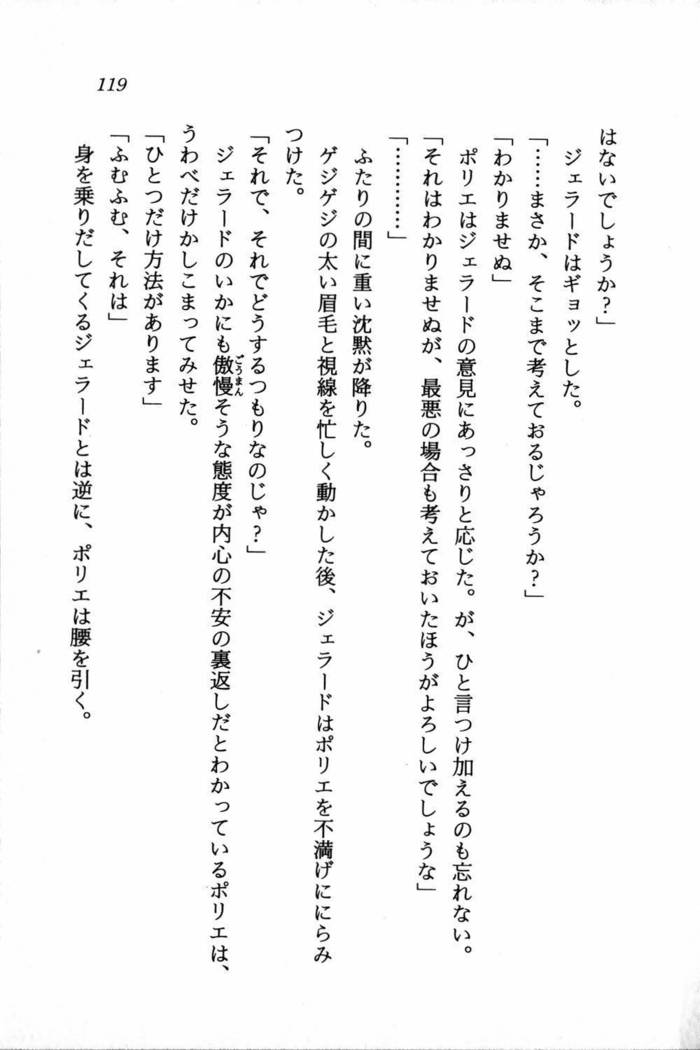 119
はないでしょうか？」
ジェラードはギョッとした。
「……まさか、そこまで考えておるじゃろうか？」
「わかりませぬ」
ポリエはジェラードの意見にあっさりと応じた。が、ひと言つけ加えるのも忘れない。
「それはわかりませぬが、最悪の場合も考えておいたほうがよろしいでしょうな」
「…………」
ふたりの間に重い沈黙が降りた。
ゲジゲジの太い眉毛と視線を忙しく動かした後、ジェラードはポリエを不満げににらみ
つけた。
「それで、それでどうするつもりなのじゃ？」
ジェラードのいかにも傲慢そうな態度が内心の不安の裏返しだとわかっているポリエは、
ごうまん
うわべだけかしこまってみせた。
「ひとつだけ方法があります」
「ふむふむ、それは」
身を乗りだしてくるジェラードとは逆に、ポリエは腰を引く。